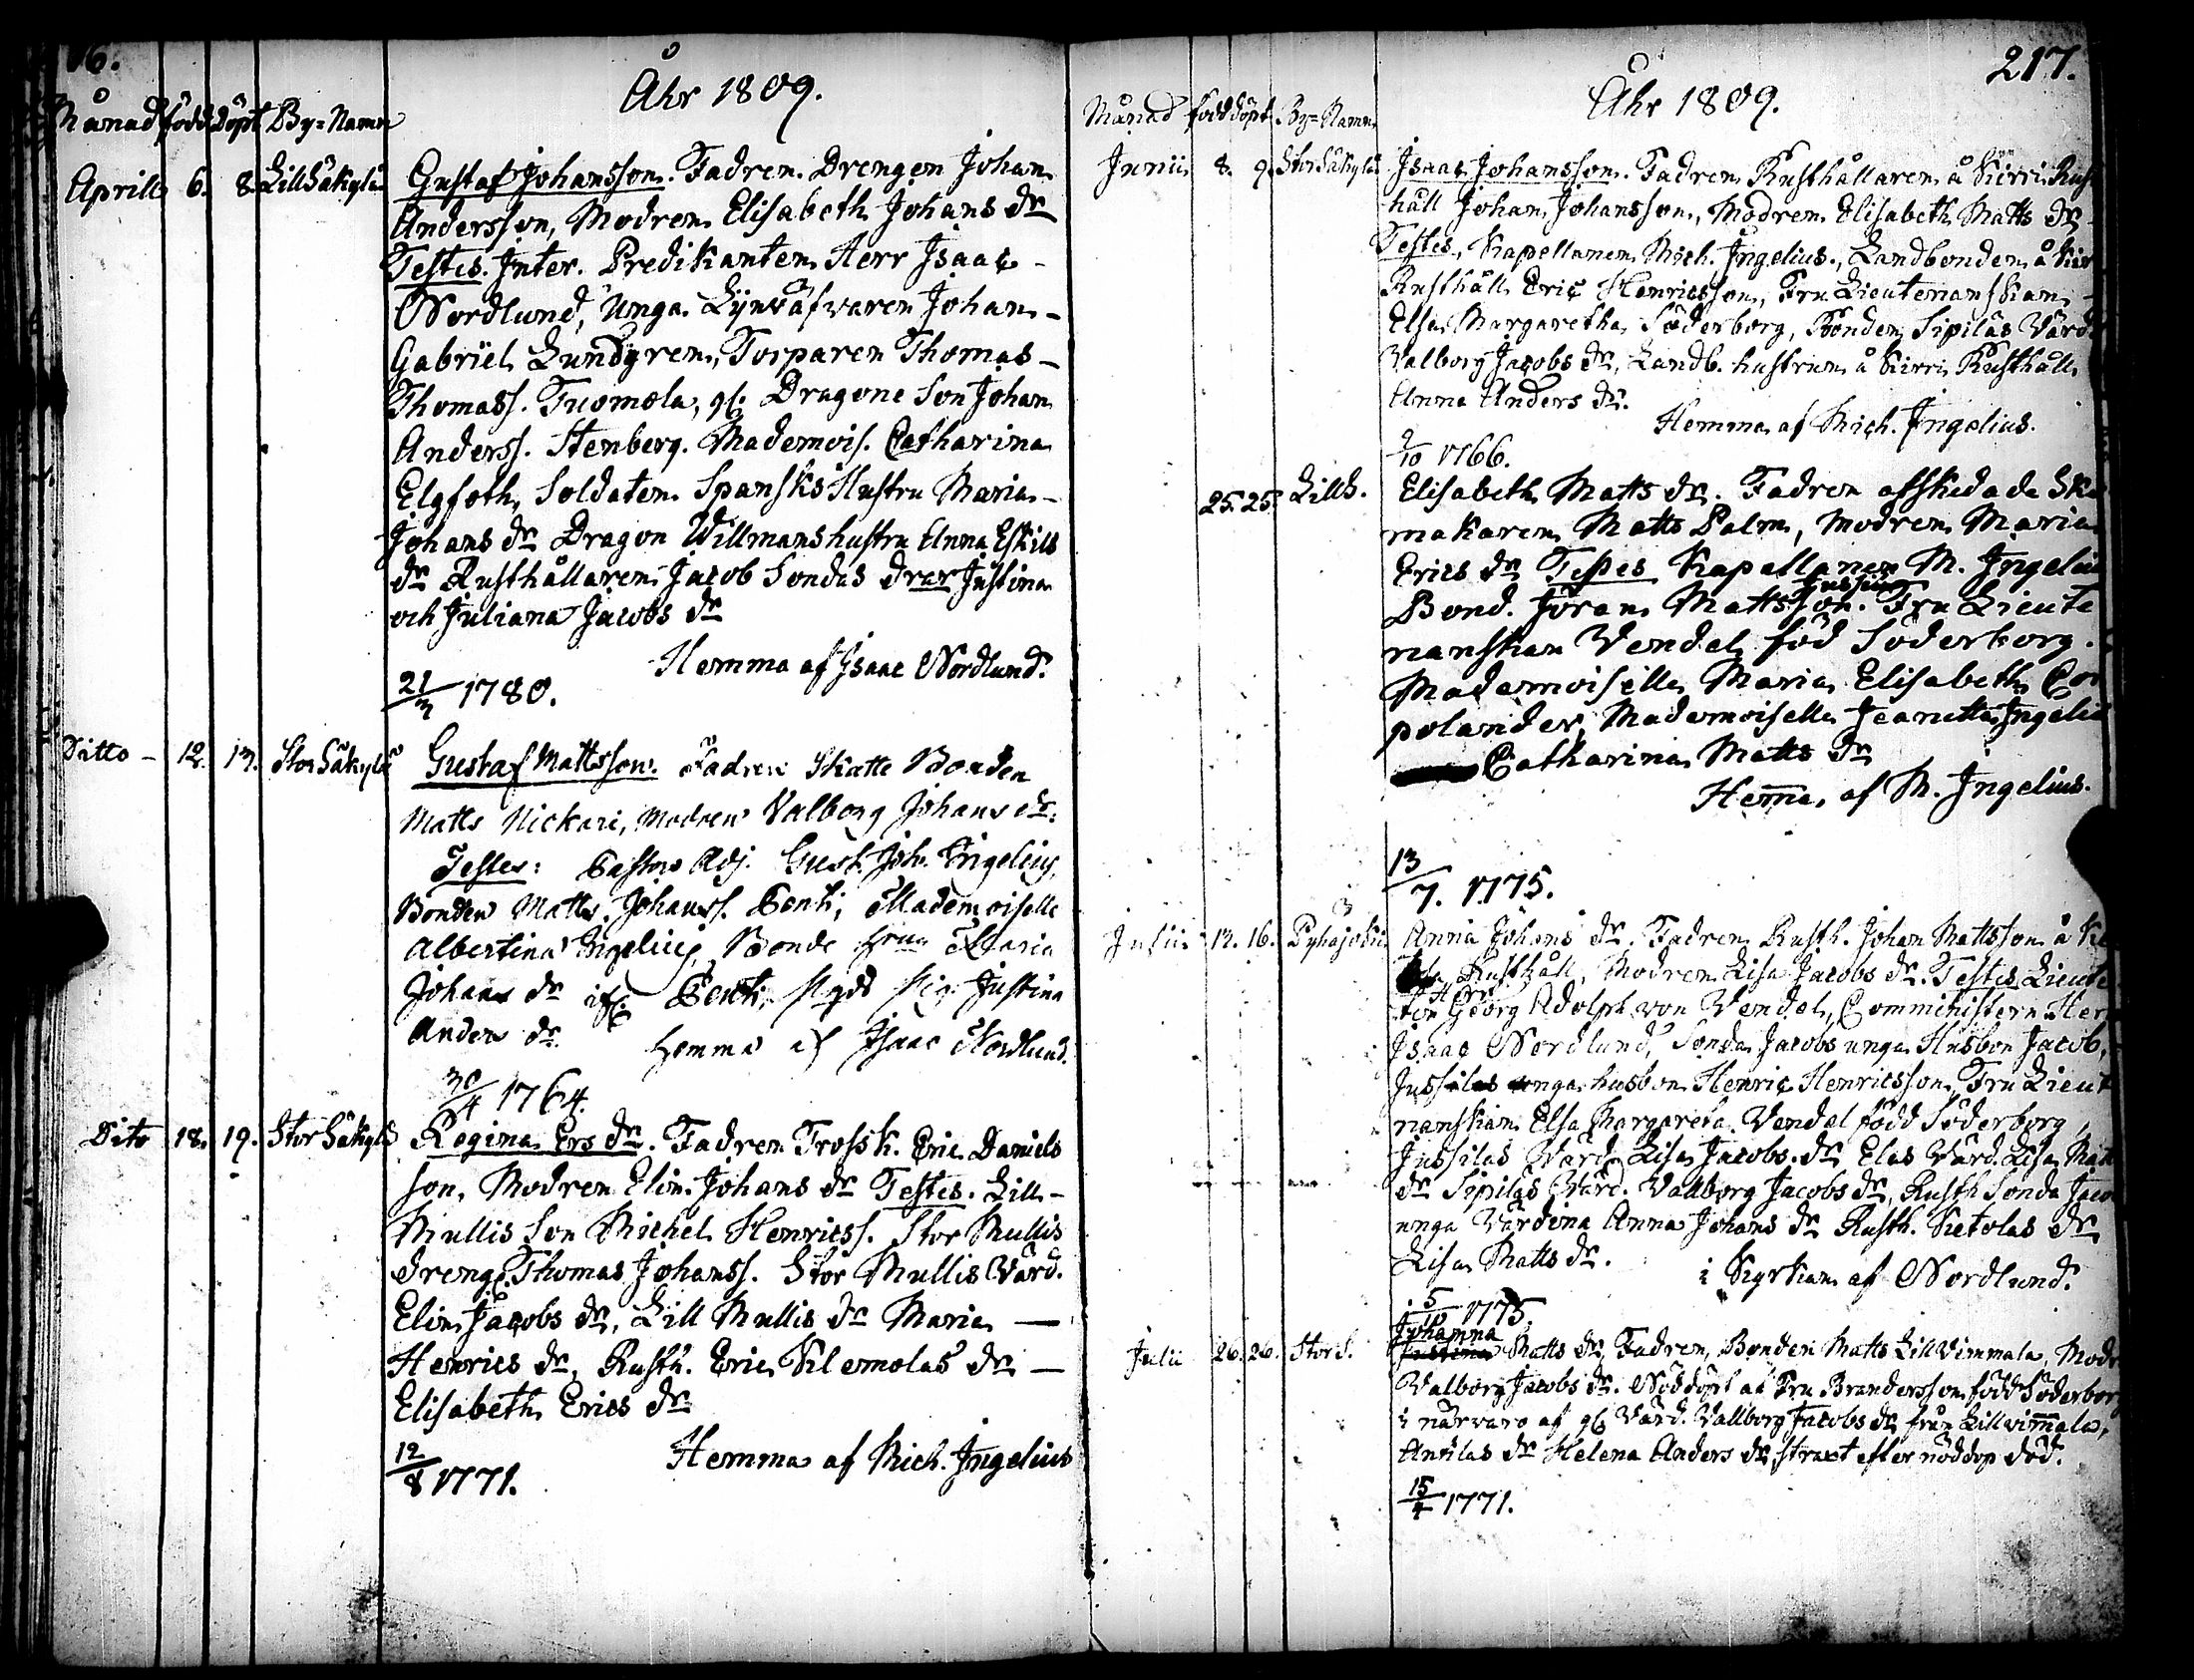 16.
Åhr 1809.
Månad född döpt By=Namn
Aprill 6. 8. LillSäkylä Gustaf Johansson. Fadren Drengen Johan
Andersson, Modren Elisabeth Johans dr
Testes. Inter. Predikanten Herr Isaac -
Nordlund, Unga Johan -
Gabriel Lundgren, Torparen Thomas -
Thomass. Tuomola, gl. Dragone Son Johan
Anderss. Stenberg. Mademois. Catharina
Elgfoth, Soldaten Spansks Hustru Maria -
Johans dr Dragon Willmans hustru Anna Eskils
dr Rusthållaren Jacob Sondas drar Justina
och Juliana Jacobs dr
Hemma af Isaac Nordlund.
21/3 1780.
Ditto - 12. 13. StorSäkylä Gustaf Mattsson. Fadren Skatte Bonden
Matts Nickari, Modren Valborg Johans dr.
Testes: Pastors Adj. Gust. Joh. Ingelius,
Bonden Matts Johanss. Penti, Mademoiselle
Albertina Ingelius, Bonde Maria
Johans dr Penti, Pig. Justina
Anders dr.
Hemma af Isaac Nordlund.
30/4 1764.
Dito 18. 19. StorSäkylä Regina Ers dr. Fadren Trossk. Eric Daniels
son, Modren Elin Johans dr Testes. Lill -
Mullis Son Michel Henricss. Stor Mullis
dreng. Thomas Johanss. Stor Mullis Värd.
Elin Jacobs dr, Lill Mullis dr Maria —
Henrics dr, Rusth. Eric Kilemolas dr —
Elisabeth Erics dr
Hemma af Mich. Ingelius
12/8 1771.
217.
Åhr 1809.
Månad född döpt By=Namn
Junii 8. 9. StorSäkylä Isaac Johansson. Fadren Rusthållaren å Kirri Rust
håll Johan Johansson, Modren Elisabeth Matts dr -
Testes, Kapellanen Mich. Ingelius, Landbonden å Kirr
Rusthåll Eric Henricsson, Fru Lieutenanskan -
Elsa Margaretha Söderborg, Bonden Sipiläs Värd
Valborg Jacobs dr, Landb. hustrun å Kirri Rusthåll
Anna Anders dr.
Hemma af Mich. Ingelius.
9/10 1766.
25. 25. LillS. Elisabeth Matts dr. Fadren afskedade Sko
makaren Matts Palm, Modren Maria
Erics dr Testes Kapellanen M. Ingelius
Bond. Jöran Mattsson. Fru Lieute
nanskan Vendel född Söderborg.
Mademoiselle Maria Elisabeth Co
polander, Mademoiselle Jeanetta Ingeli
Catharina Matts dr
Hemma af M. Ingelius.
13/7. 1775.
Julii 12. 16. Pyhäjoki Anna Johans dr. Fadren Rusth. Johan Mattsson å Ke
la Rusthåll, Modren Lisa Jacobs dr. Testes Lieute
Herr Georg Adolph von Vendel, Comministern Herr
Isaac Nordlund, Sonda Jacobs unga Husbon Jacob,
Jussilas unga husbon Henric Henricsson, Fru Lieut
nanskan Elsa Margareta Vendel född Söderborg,
Jussilas Värd. Lisa Jacobs dr, Elas Värd. Lisa Matts
dr Sipiläs Värd. Vallborg Jacobs dr, Rusth Sonda Jaco
unga Värdina Anna Johans dr Rusth. Ketolas dr
Lisa Matts dr.
i Kyrkan af Nordlund.
5/10 1775.
Johanna
Julii 26. 26. StorS. Justina Matts dr, Fadren, Bonden Matts LillVimmala, Modr
Valborg Jacobs dr. Nöddöpt af Fru Brandersson född Söderbor
i närvaro af gl. Värd. Vallborg Jacobs dr från Lillvimmala,
Antilas dr Helena Anders dr, straxt efter nöddop död.
15/4 1771.